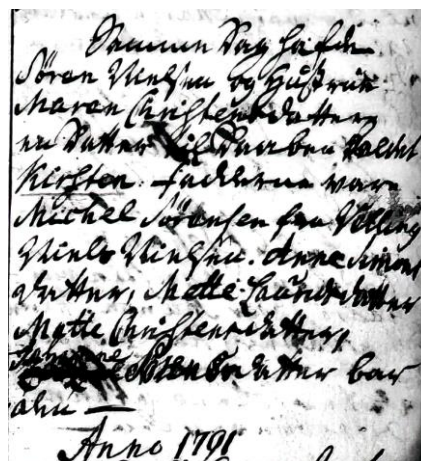 Samme Dag hafde
Sören Nielsen og Hustrue
Maren Christensdatter
en Datter til Daaben kaldet
Kirsten. fadderne vare
Michel Sörensen fra
Niels Nielsen. Anne Simons
datter, Mette Lauridsdatter
Mette Christensdatter,
datter bar
Anno 1791